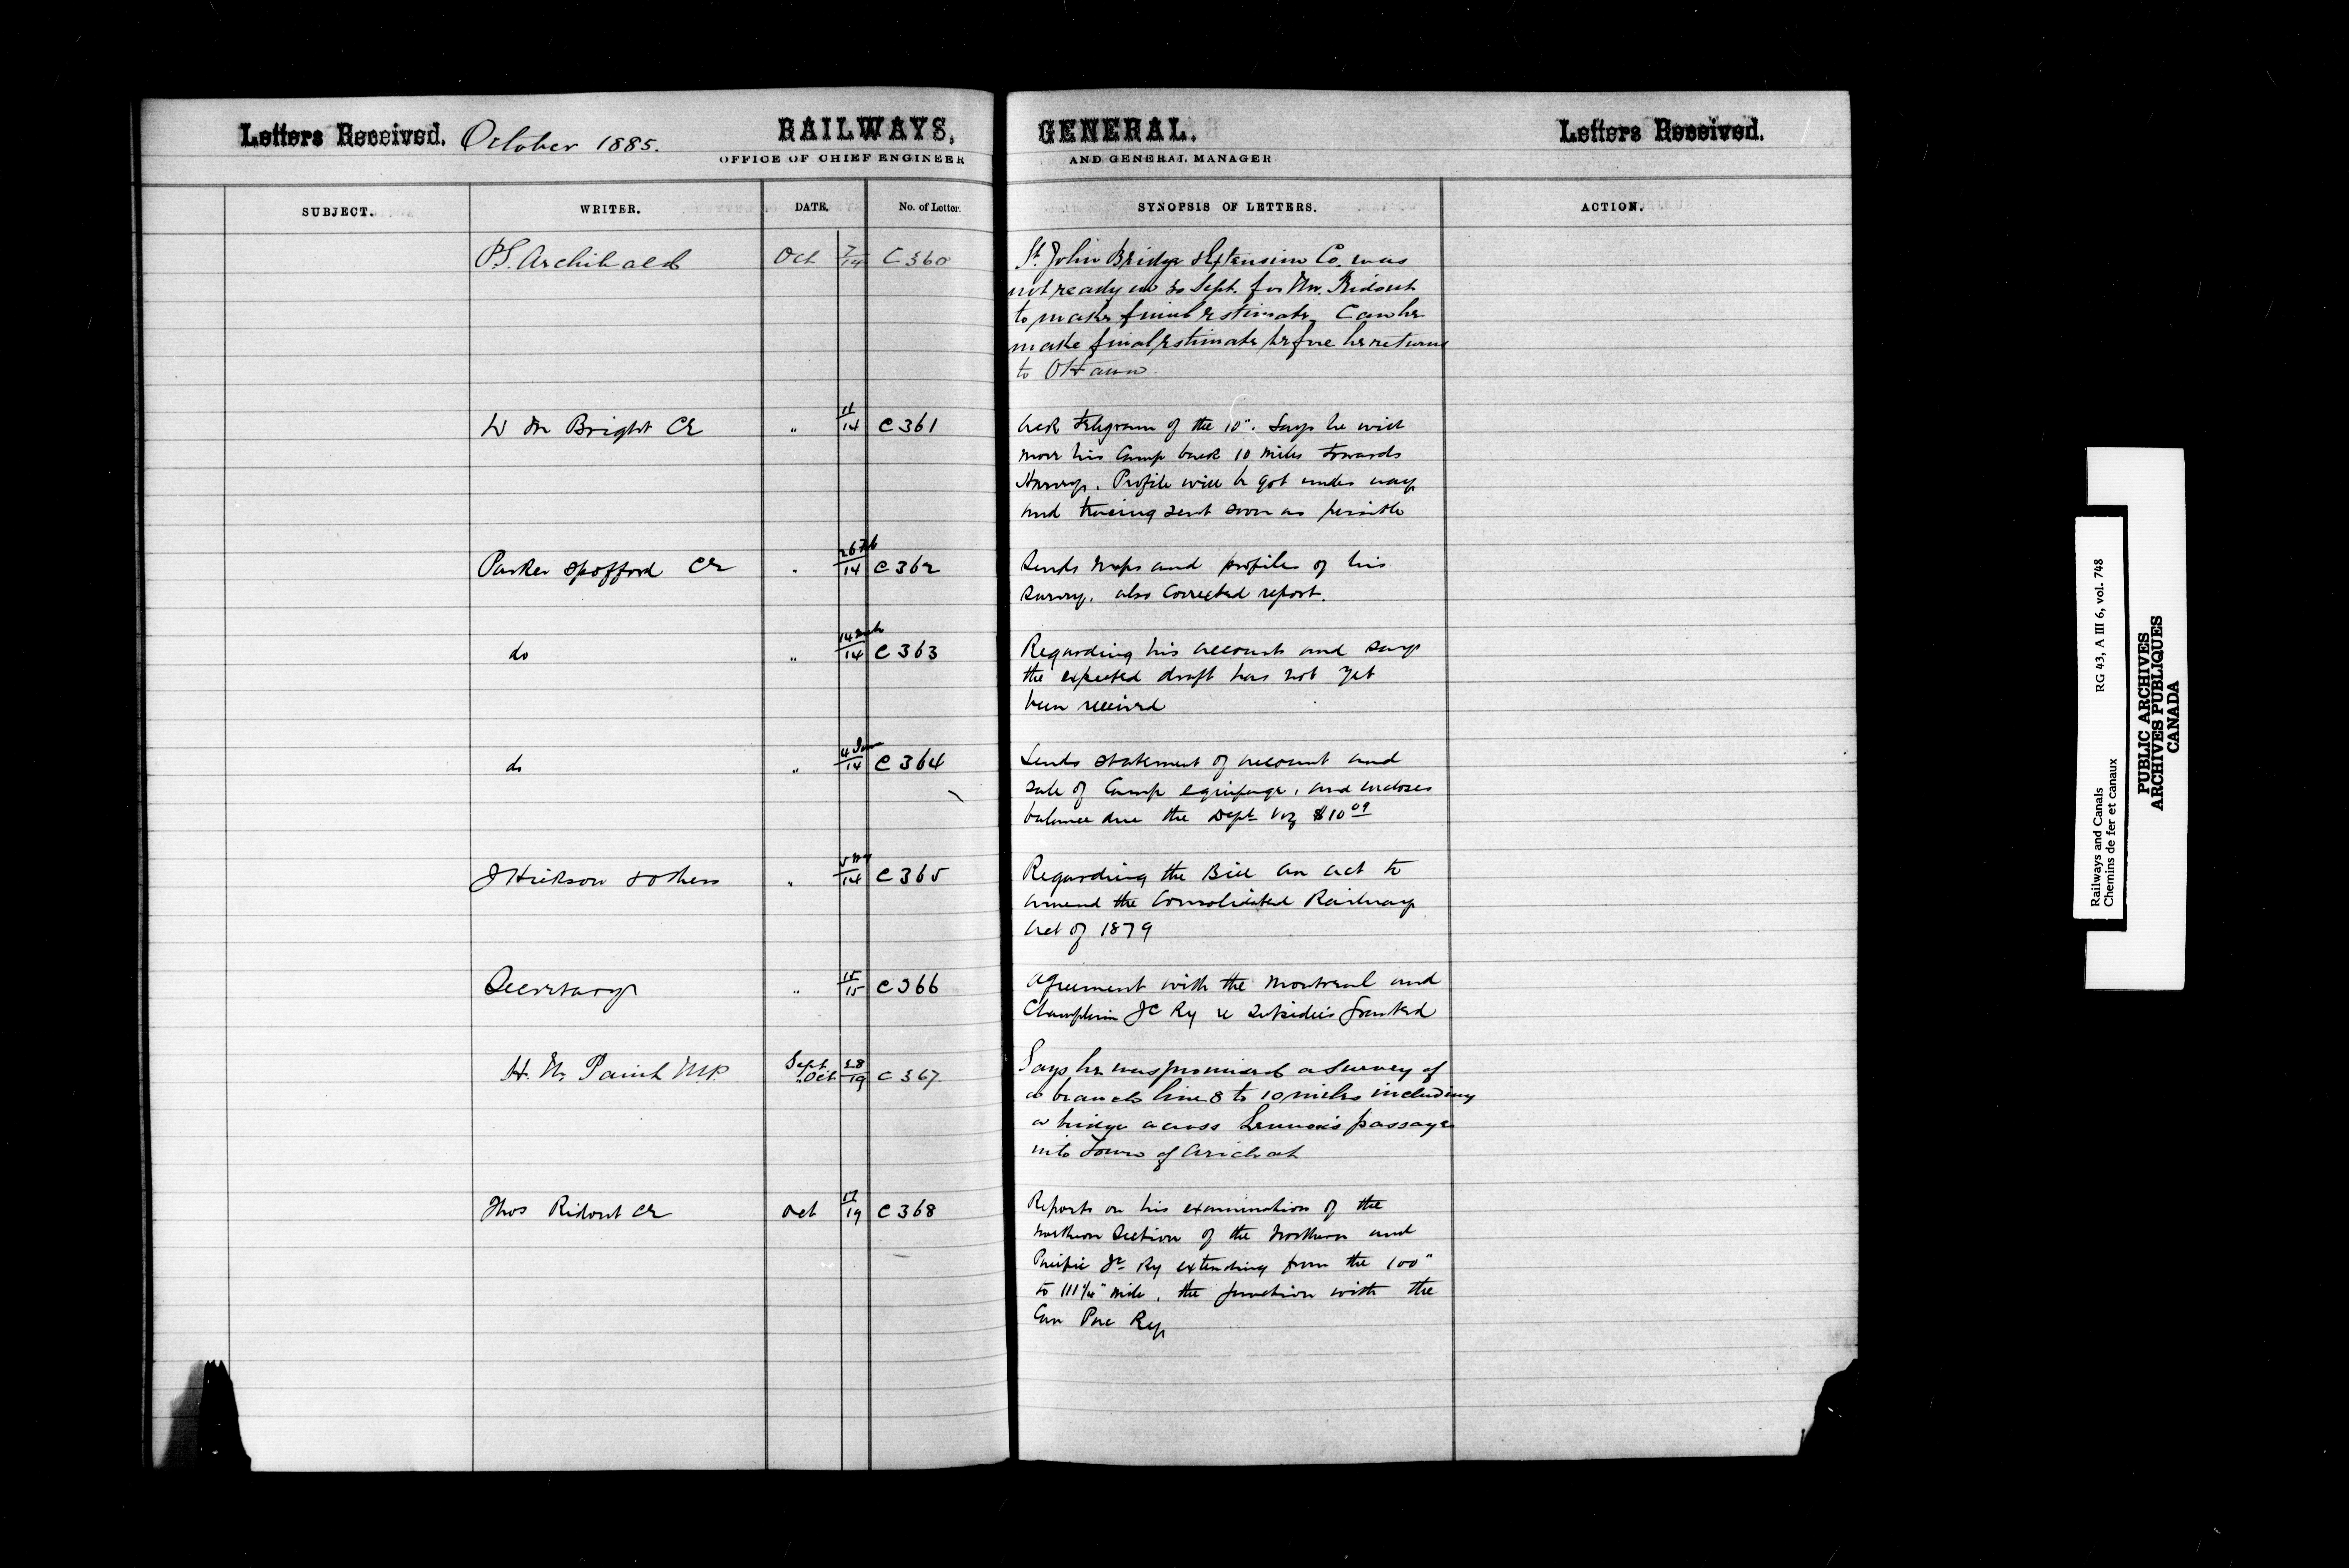 Letters Received. October 1885. RAILWAYS, GENERAL. Letters Received.
OFFICE OF CHIEF ENGINEER AND GENERAL MANAGER.
SUBJECT. WRITER. DATE. No. of Letter. SYNOPSIS OF LETTERS. ACTION.
P.S. Archibald Oct 7/14 C 360 St. John Bridge & Extension Co. was
not ready on 30 Sept. for Mr. Ridout
to make final estimate, Can he
make final estimate before he returns
to Ottawa
W M Bright CE " 11/14 C 361 Ack Telegram of the 10". Says he will
move his Camp back 10 miles towards
Harvey. Profile will be got under way
and tracing sent soon as possible
Parker Spofford CE " 26 Feb/14 C 362 Sends maps and profiles of his
survey. also Corrected report.
do " 14 Mch/14 C 363 Regarding his account and says
the expected draft has not yet
been received
do " 4 June/14 C 364 Sends statement of account and
sale of Camp equipage, and encloses
balance due the Dept viz $10 09
J Hickson & others " /14 C 365 Regarding the Bill An Act to
amend the Consolidated Railway
Act of 1879
Secretary " 15/15 C 366 Agreement with the Montreal and
Champlain Jc Ry re Subsidies granted
H. N. Paint M.P. Sept 28 / Oct 19 C 367 Says he was promised a survey of
a branch line 8 to 10 miles including
a bridge across Lennox's passage
into Town of Arichat
Thos Ridout CE Oct 17/19 C 368 Reports on his examination of the
Northern Section of the Northern and
Pacific Jc Ry extending from the 100"
to 111 1/4" mile, the junction with the
Can Pac Ry
Railways and Canals RG 43, A III 6, vol. 748
Chemins de fer et canaux
PUBLIC ARCHIVES
ARCHIVES PUBLIQUES
CANADA